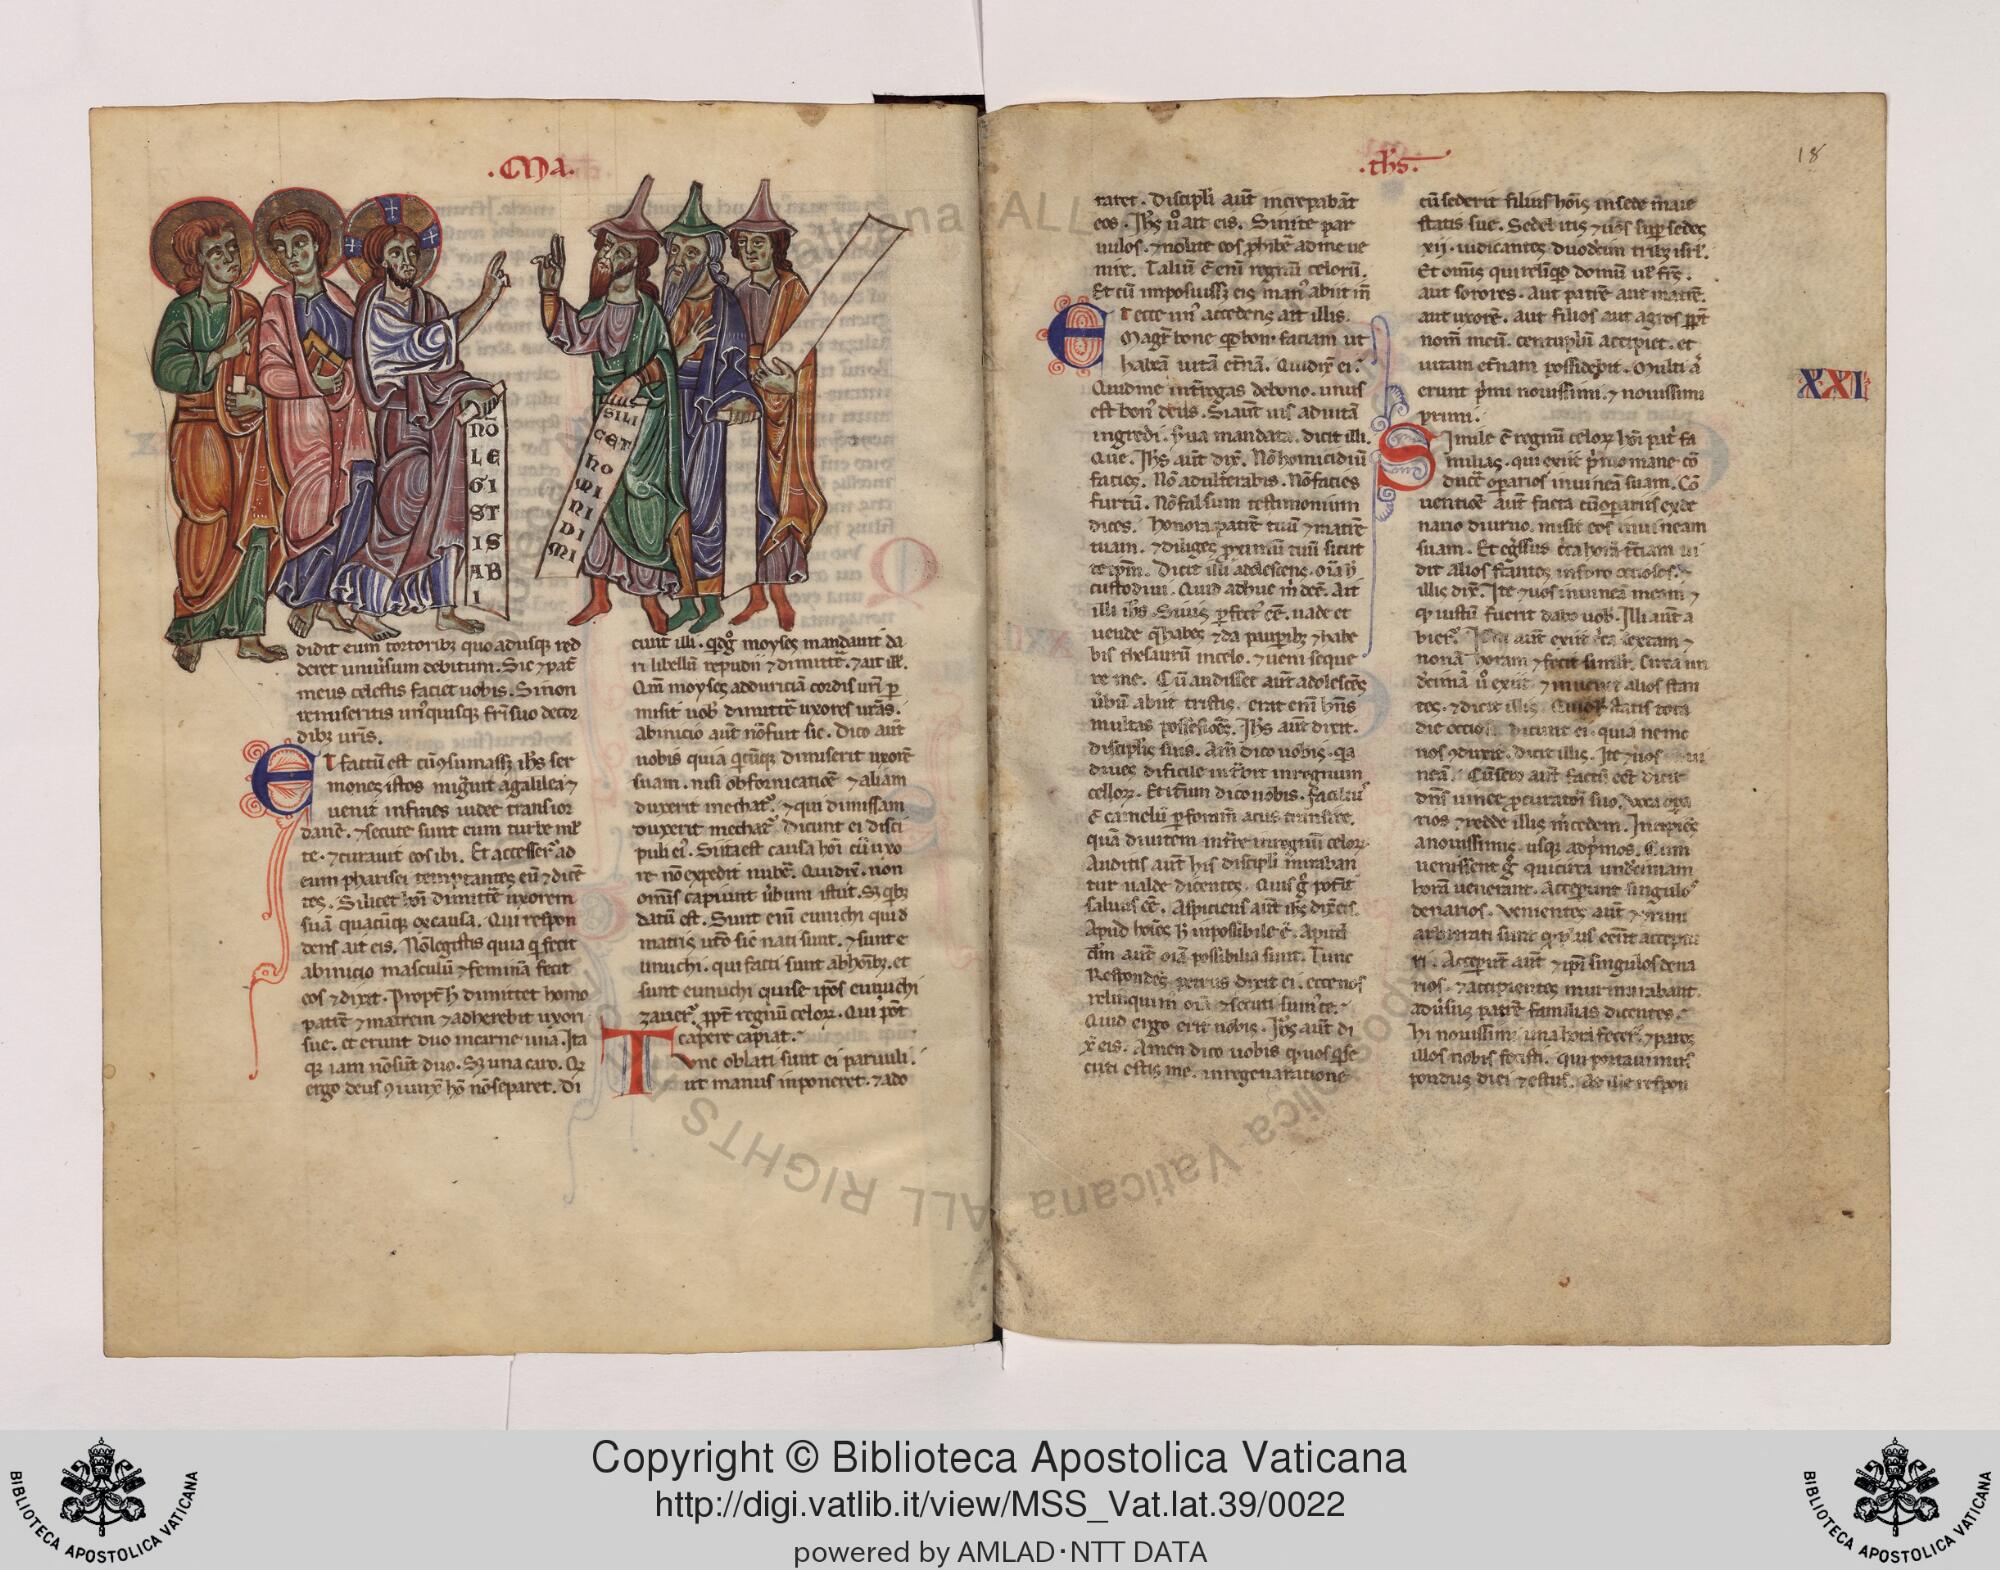 ·Ma·
NO
LE
GI
ST
IS
AB
I
SILI
CET
hO
MI
NI
DI
MI
didit eum tortoribꝫ quo adusqꝫ red
deret uniũsum debitum. Sic ⁊ pat̃
meus celestis faciet uobis. Si non
remiseritis un᷒quisqꝫ fr̃i suo de cor
dibꝫ ur̃is.
ET factũ est cũ ↄsumassꝫ ih̃s ser
mones istos migrauit a galilea ⁊
uenit in fines iudee transior
danẽ. ⁊ secute sunt eum turbe ml̃
te. ⁊ curauit eos ibi. Et accesser̃ ad
eum pharisei temptantes eũ ⁊ dicẽ
tes. Si licet hõi dimittẽ uxorem
suã quacũqꝫ ex causa. Qui respon
dens ait eis. Nõ legistis quia q̇ fecit
ab inicio masculũ ⁊ feminã fecit
eos ⁊ dixit. Propt̃ h̃ dimittet homo
patrẽ ⁊ matrem ⁊ adherebit uxori
sue. et erunt duo in carne una. Ita
qꝫ iam nõ sũt duo. Sꝫ una caro. Q̃
ergo deus ↄiunx̃ hõ nõ separet. Di
cunt illi. Qd̃ g̊ moyses mandauit da
ri libellũ repudii ⁊ dimittẽ. ⁊ ait ill̃.
Qm̃ moyses ad duriciã cordis ur̃i ꝑ
misit uob̃ dimittẽ uxores ur̃as.
Ab inicio aut̃ nõ fuit sic. Dico aut̃
uobis quia q̇cũqꝫ dimiserit uxorẽ
suam. nisi ob fornicationẽ ⁊ aliam
duxerit mechat᷒. ⁊ qui dimissam
duxerit mechat᷒. Dicunt ei disci
puli ei᷒. Si ita est causa hõi cũ uxo
re nõ expedit nubẽ. Qui dix̃. non
om̃s capiunt ũbum istut. Sꝫ q̇bꝫ
datũ est. Sunt enĩ eunuchi qui d
matris utõ sic nati sunt. ⁊ sunt e
unuchi. qui facti sunt ab hõibꝫ. et
sunt eunuchi qui se ip̃os eunuchi
zauer̃. ꝓpt̃ regnũ celoꝝ. Qui põt
capere capiat.
Tunc oblati sunt ei paruuli.
ut manus inponeret. ⁊ ado
·ths·
18
raret. Discipl̃i aut̃ increpabãt
eos. Ih̃s ũ ait eis. Sinite par
uulos. ⁊ nolite eos ꝓhibẽ ad me ue
nire. Taliũ ẽ enĩ regnũ celorũ.
Et cũ imposuissꝫ eis man᷒ abiit ĩ
Et ecce un᷒ accedens ait illis.
Magr̃ bone qd̃ boni faciam ut
habeã uitã et̃nã. Qui dix̃ ei.
Quid me int̃rogas de bono. unus
est bon᷒ deus. Si aut̃ uis ad uitã
ingredi. s̃ua mandata. dicit illi.
Que. Ih̃s aut̃ dix̃. Nõ homicidiũ
facies. Nõ adult̃rabis. Nõ facies
furtũ. Nõ falsum testimonium
dices. honora patrẽ tuũ ⁊ matrẽ
tuam. ⁊ diliges ꝓximũ tuũ sicut
te ip̃m. Dicit illi adolescens. oĩa h̃
custodiui. Quid adhuc m̃ deẽ. Ait
illi ih̃s. Si uis ꝑfect᷒ eẽ. uade et
uende q̃ habes ⁊ da pauꝑibꝫ ⁊ habe
bis thesaurũ in celo. ⁊ ueni seque
re me. Cũ audisset aut̃ adolescẽs
ũbũ abiit tristis. erat enĩ hñs
multas possessiõẽs. Ih̃s aut̃ dixit.
discipl̃is suis. Am̃ dico uobis. qa
diues dificile int̃bit in regnum
celoꝝ. Et itum dico uobis. faciliu᷒
ẽ camelũ ꝑ foram̃ acus transire.
quã diuitem int̃re in regnũ celoꝝ.
Auditis aut̃ his discipl̃i miraban
tur ualde dicentes. Quis g̊ pot̃it
saluus eẽ. Aspiciens aut̃ ih̃s dix̃ eis.
Apud hoĩes h̃ inpossibile ẽ. Apud
dm̃ aut̃ oĩa possibilia sunt. Tunc
Respondes petrus dixit ei. ecce nos
relinquim᷒ oĩa ⁊ secuti sum᷒ te.
Quid ergo erit nobis. Ih̃s aut̃ di
x̃ eis. Amen dico uobis qꝫ uos q̇ se
cuti estis me. in regenaratione
cũ sederit filius hoĩs in sede maie
statis sue. Sedebitis ⁊ uos suꝑ sedes
xij. iudicantes duodecim tribꝫ isrl̃.
Et om̃is qui reliq̇d domũ ul̃ fr̃s.
aut sorores. Aut patrẽ aut matrẽ.
aut uxorẽ. aut filios aut agros ꝓpt̃
nom̃ meũ. centuplũ accipiet. et
uitam et̃nam possidebit. Multi a
erunt p̃mi nouissimi. ⁊ nouissimi
primi.
XXI
Simile ẽ regnũ celoꝝ hõi patri fa
milias. qui exiit p̃mo mane cõ
duc̃e oꝑarios in uineã suam. Cõ
uentiõẽ aut̃ facta cũ oꝑariis ex de
nario diurno. misit eos in uineam
suam. Et eg̃ssus c̃ca horã t̃ciam ui
dit alios stantes in foro ociosos. ⁊
illis dix̃. Ite ⁊ uos in uineã meam ⁊
qd̃ iustũ fuerit dabo uob̃. Illi aut̃ a
bier̃. aut̃ exiit c̃ca sextam ⁊
nonã horam ⁊ fecit simil̃r. Circa un
decimã ũ exiit ⁊ inuenit alios stan
tes. ⁊ dicit illis. Quid statis tota
die dicunt ei. quia nemo
nos ↄduxit. Dicit illis. Ite ⁊ uos
neã. Cũ sero aut̃ factũ eẽt dicit
dñs uinee ꝓcuratori suo. Uoca oꝑa
rios ⁊ redde illis m̃cedem. Incipiẽs
a nouissimis. usqꝫ ad p̃mos. Cum
uenissent g̊ qui circa undecimam
horã uenerant. Acceperunt singulos
denarios. Venientes aut̃ ⁊ p̃mi
arbitrati sunt qd̃ plus eẽnt acceptu
ri. Acceperũt aut̃ ⁊ ip̃i singulos dena
rios. ⁊ accipientes murmurabant.
aduersus patrẽ familias dicentes.
hi nouissimi una hora fecer̃. ⁊ pares
illos nobis fecisti. qui portauimus
pondus diei ⁊ estus. At ille respon
Copyright © Biblioteca Apostolica Vaticana
http://digi.vatlib.it/view/MSS_Vat.lat.39/0022
powered by AMLAD·NTT DATA
BIBLIOTECA APOSTOLICA VATICANA
BIBLIOTECA APOSTOLICA VATICANA